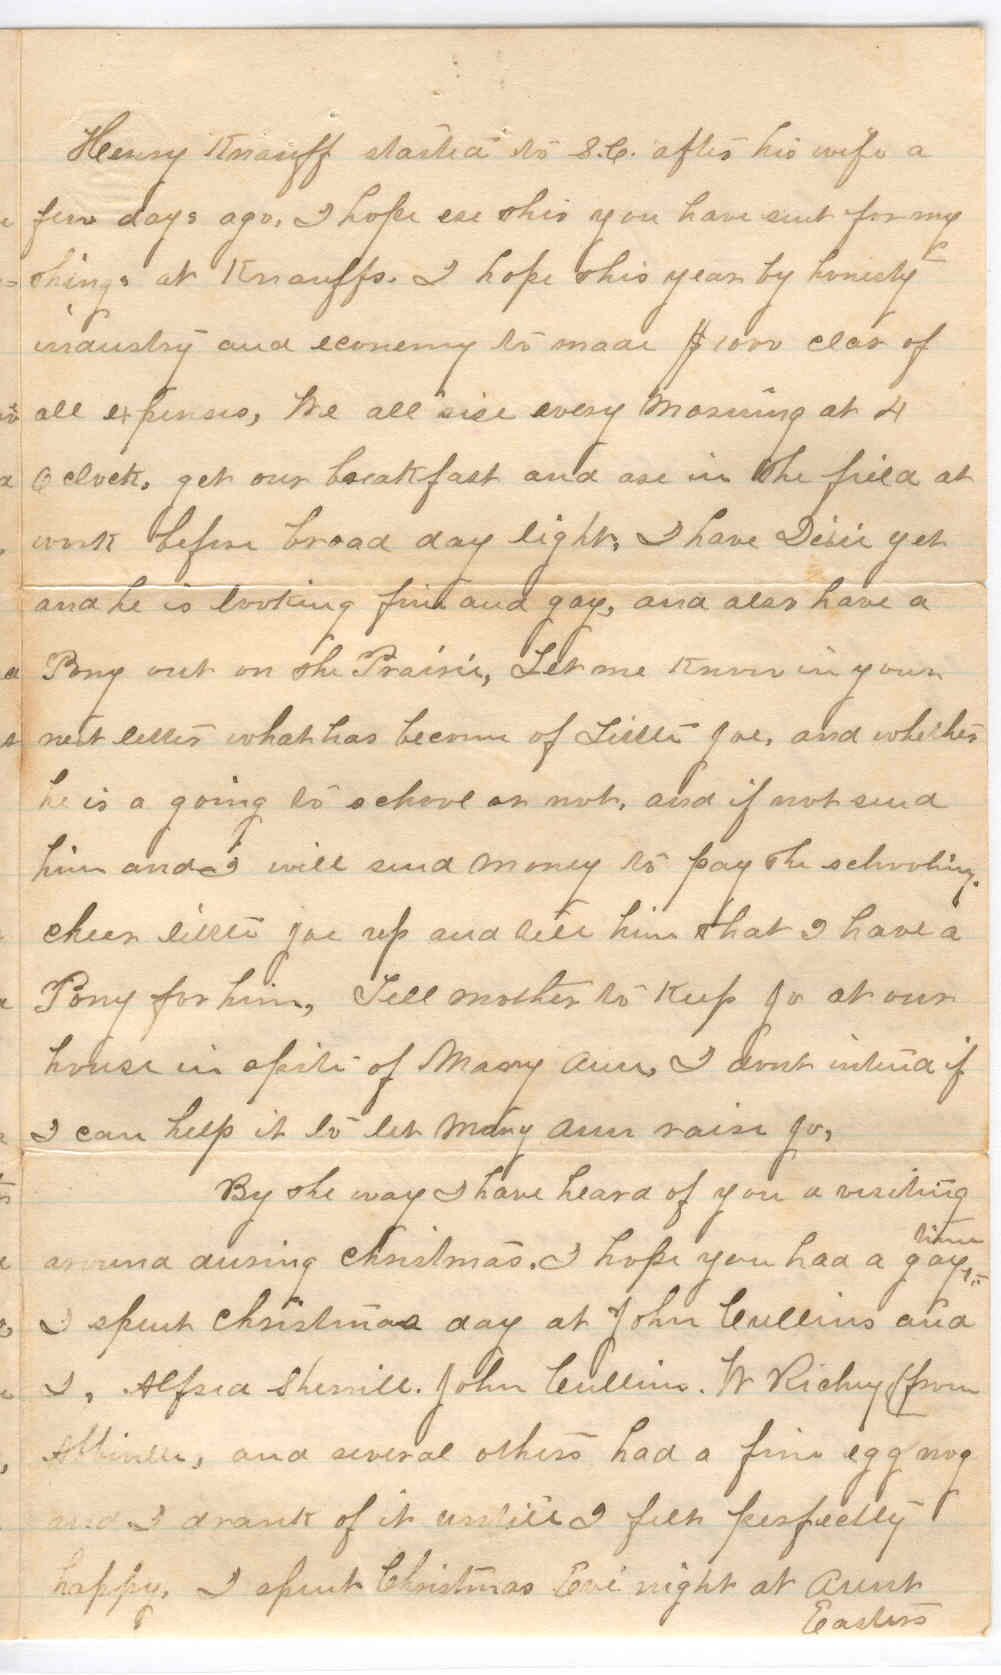 Henry Knauff started to S.C. after his wife a
few days ago, I hope ere this you have sent for my
things at Knauffs. I hope this year by honesty
industry and economy to made $1000 clear of
all expenses, We all rise every morning at 4
O clock, get our breakfast and are in the field at
work before broad day light, I have Dixie yet
and he is looking fine and gay, and also have a
Pony out on the Prairie, Let me know in your
next letter what has become of Little Joe, and whether
he is a going to school or not, and if not send
him and I will send money to pay the schooling.
cheer little Joe up and tell him that I have a
Pony for him, Tell mother to keep Jo at our
house in spite of Mary Ann, I dont intend if
I can help it to let Mary Ann raise Jo,
By the way I have heard of you a visiting
around during Christmas. I hope you had a gay time
I spent Christmas day at John Cullins and
I, Alfred Sherrill. John Cullins. W Richey (from
and several others had a fine egg nog
and I drank of it untill I felt perfectly
happy, I spent Christmas Eve night at Aunt
Easters